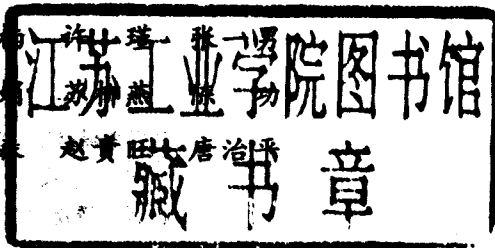 江苏工业学院图书馆
藏书章
许 瑾 张一男
苏 燕 功
赵贵旺 唐治平